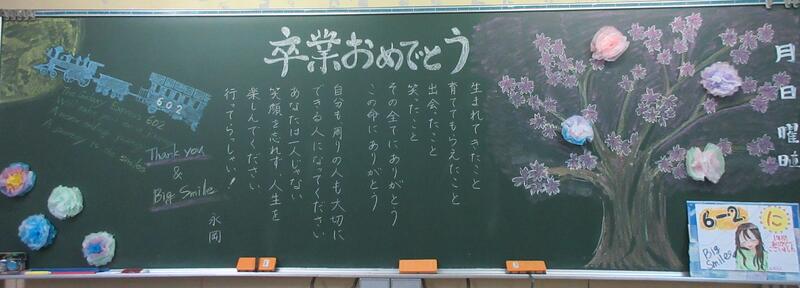 卒業おめでとう
生まれてきたこと
育ててもらえたこと
出会ったこと
笑ったこと
その全てにありがとう
この命にありがとう
自分も周りの人も大切に
できる人になってください
あなたは一人じゃない
笑顔を忘れず、人生を
楽しんでください
行ってらっしゃい!
永岡
602
Thank you
&
Big Smile
月
日
曜
6-2
に
Big
Smiles